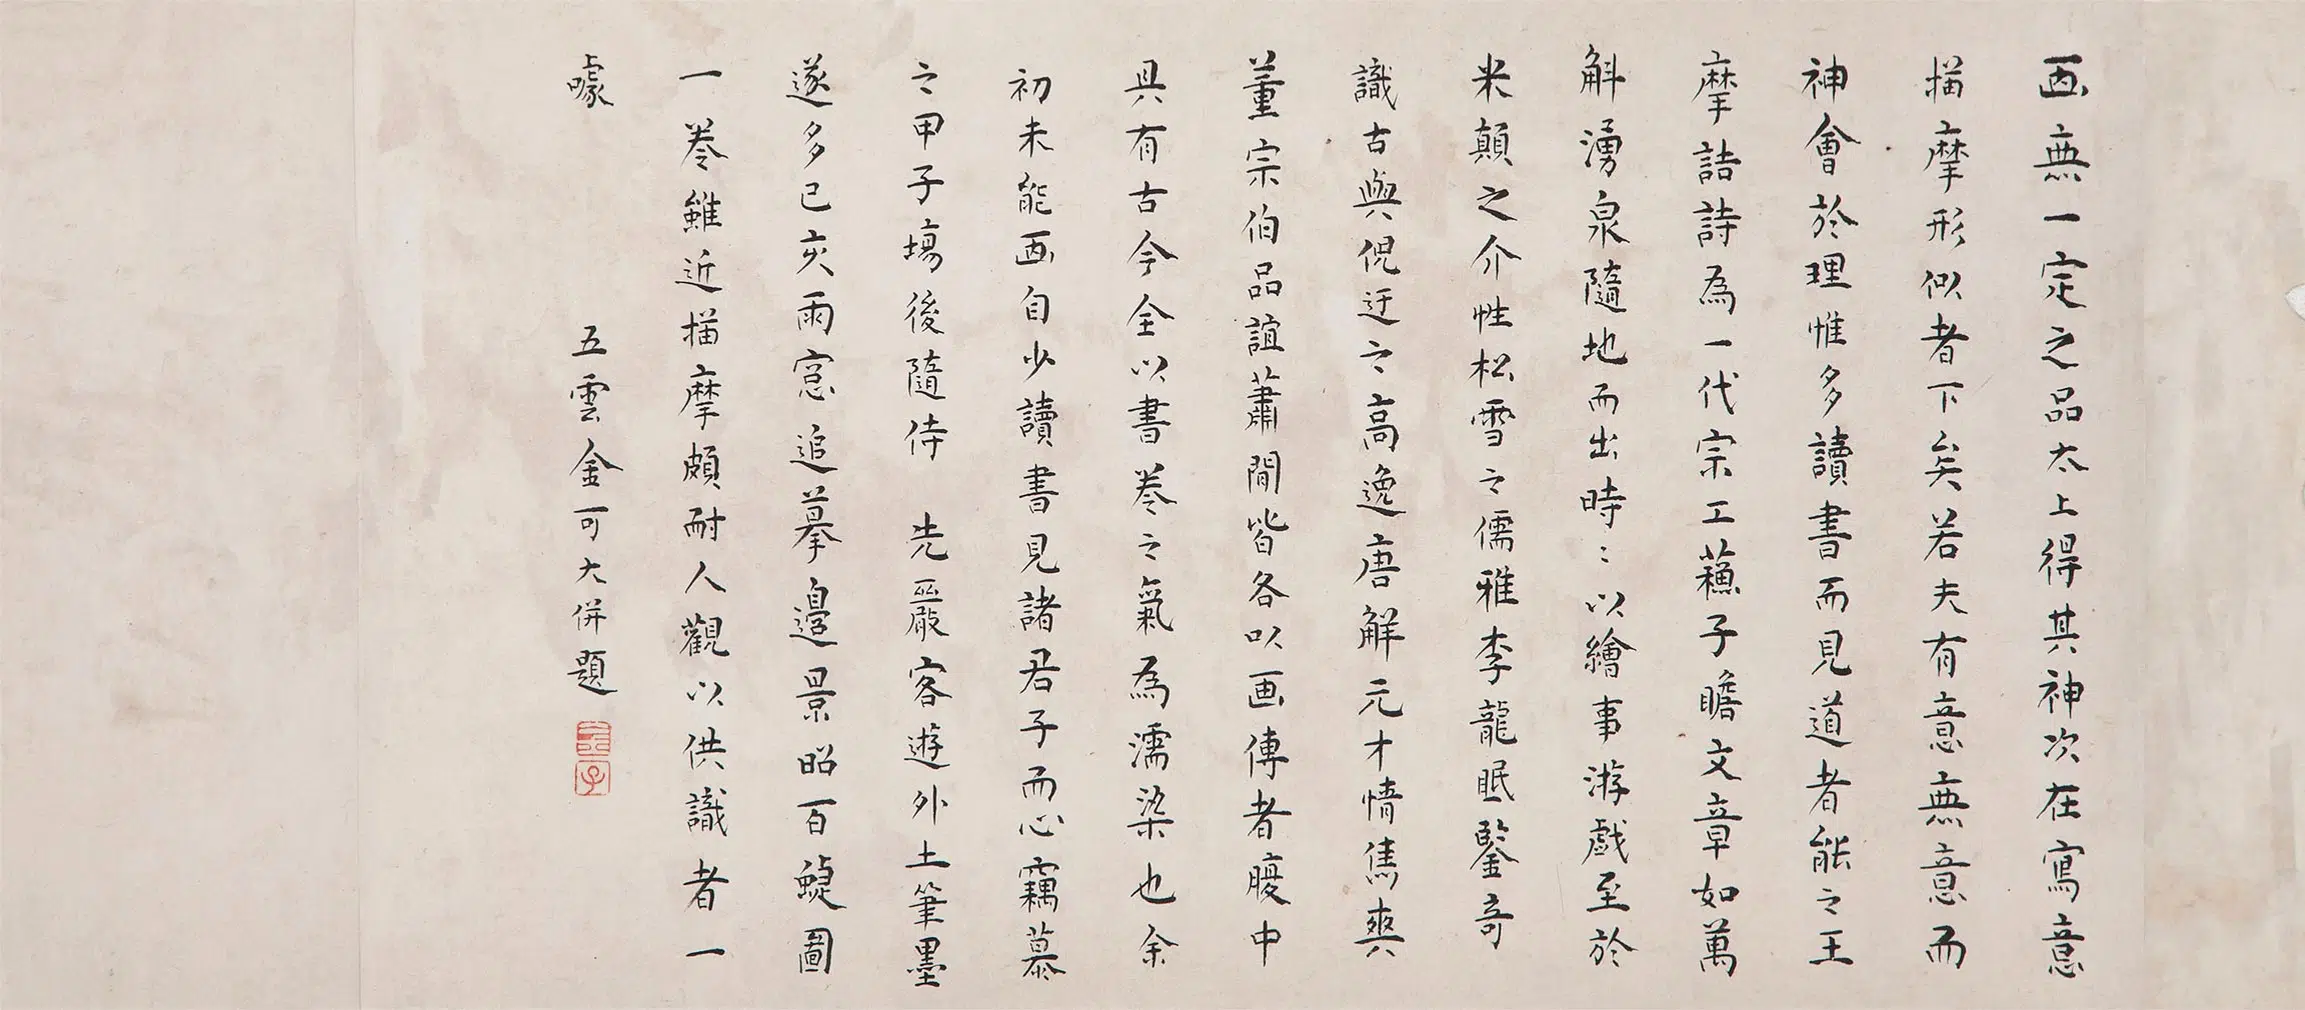 画無一定之品太上得其神次在寫意
描摩形似者下矣若夫有意無意而
神會於理惟多讀書而見道者能之王
摩詰詩為一代宗工蘓子瞻文章如萬
斛湧泉隨地而出時〻以繪事游戲至於
米顛之介性松雪之儒雅李龍眠鑒奇
識古與倪迂之高逸唐解元才情雋爽
董宗伯品誼蕭閒皆各以画傳者腹中
具有古今全以書卷之氣為濡染也余
初未能画自少讀書見諸君子而心竊慕
之甲子場後隨侍 先嚴客遊外土筆墨
遂多已亥雨窓追摹邊景昭百蝯圖
一卷雖近描摩頗耐人觀以供識者一
噱
五雲金可大併題